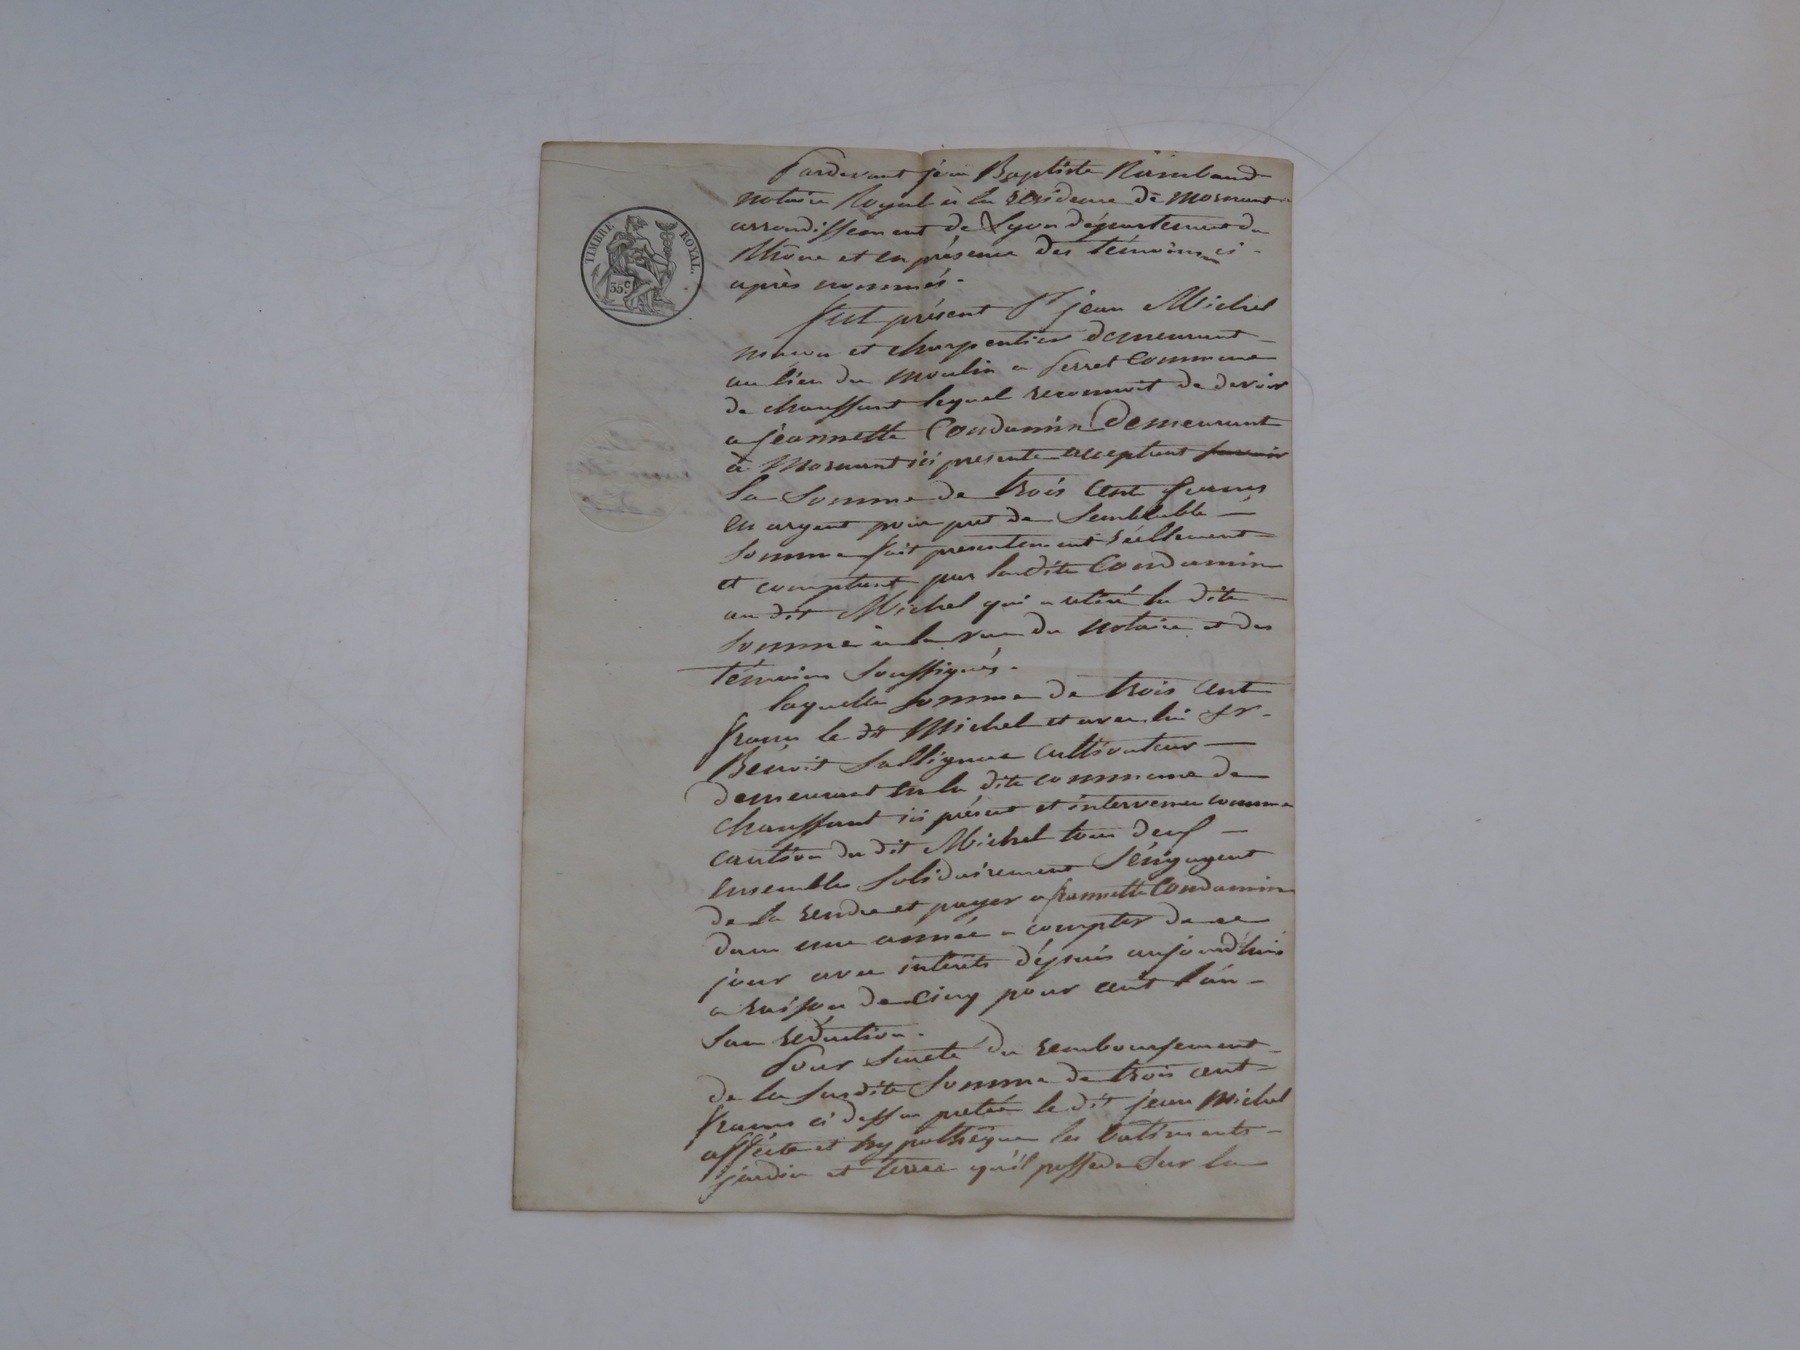 TIMBRE ROYAL.
35 c
Pardevant jean Baptiste Rambaud
notaire Royal à la residence de Mornant
arrondissement de Lyon département du
Rhône et en présence des témoins ci-
après nommés.
fut présent Sr jean Michel
macon et charpentier demeurant
au lieu du moulin a Perret Commune
de chaussant lequel reconnoit de devoir
a jeannette Condamin demeurant
à Mornant ici presente acceptant
la Somme de trois cent francs
en argent pour pret de Semblable
Somme fait presentement réellement
et comptant par ladite Condamin
au dit Michel qui a retiré la dite
Somme a la vue du notaire et des
témoins Soussignés.
laquelle Somme de trois cent
francs le dit Michel et avec lui Sr.
Benoit cultivateur
demeurant en la dite commune de
chaussant ici présent et intervenu comme
caution du dit Michel tous deux
ensemble Solidairement S'engagent
de la rendre et payer a jeannette Condamin
dans une année a compter de ce
jour avec intérêts dépuis aujourd'hui
a raison de cinq pour cent l'an
San réduction.
Pour Sureté du remboursement
de la Susdite Somme de trois cent
francs ci dessus pretée le dit jean Michel
affecte et hypothèque les batiments
jardin et terre qu'il possede Sur la